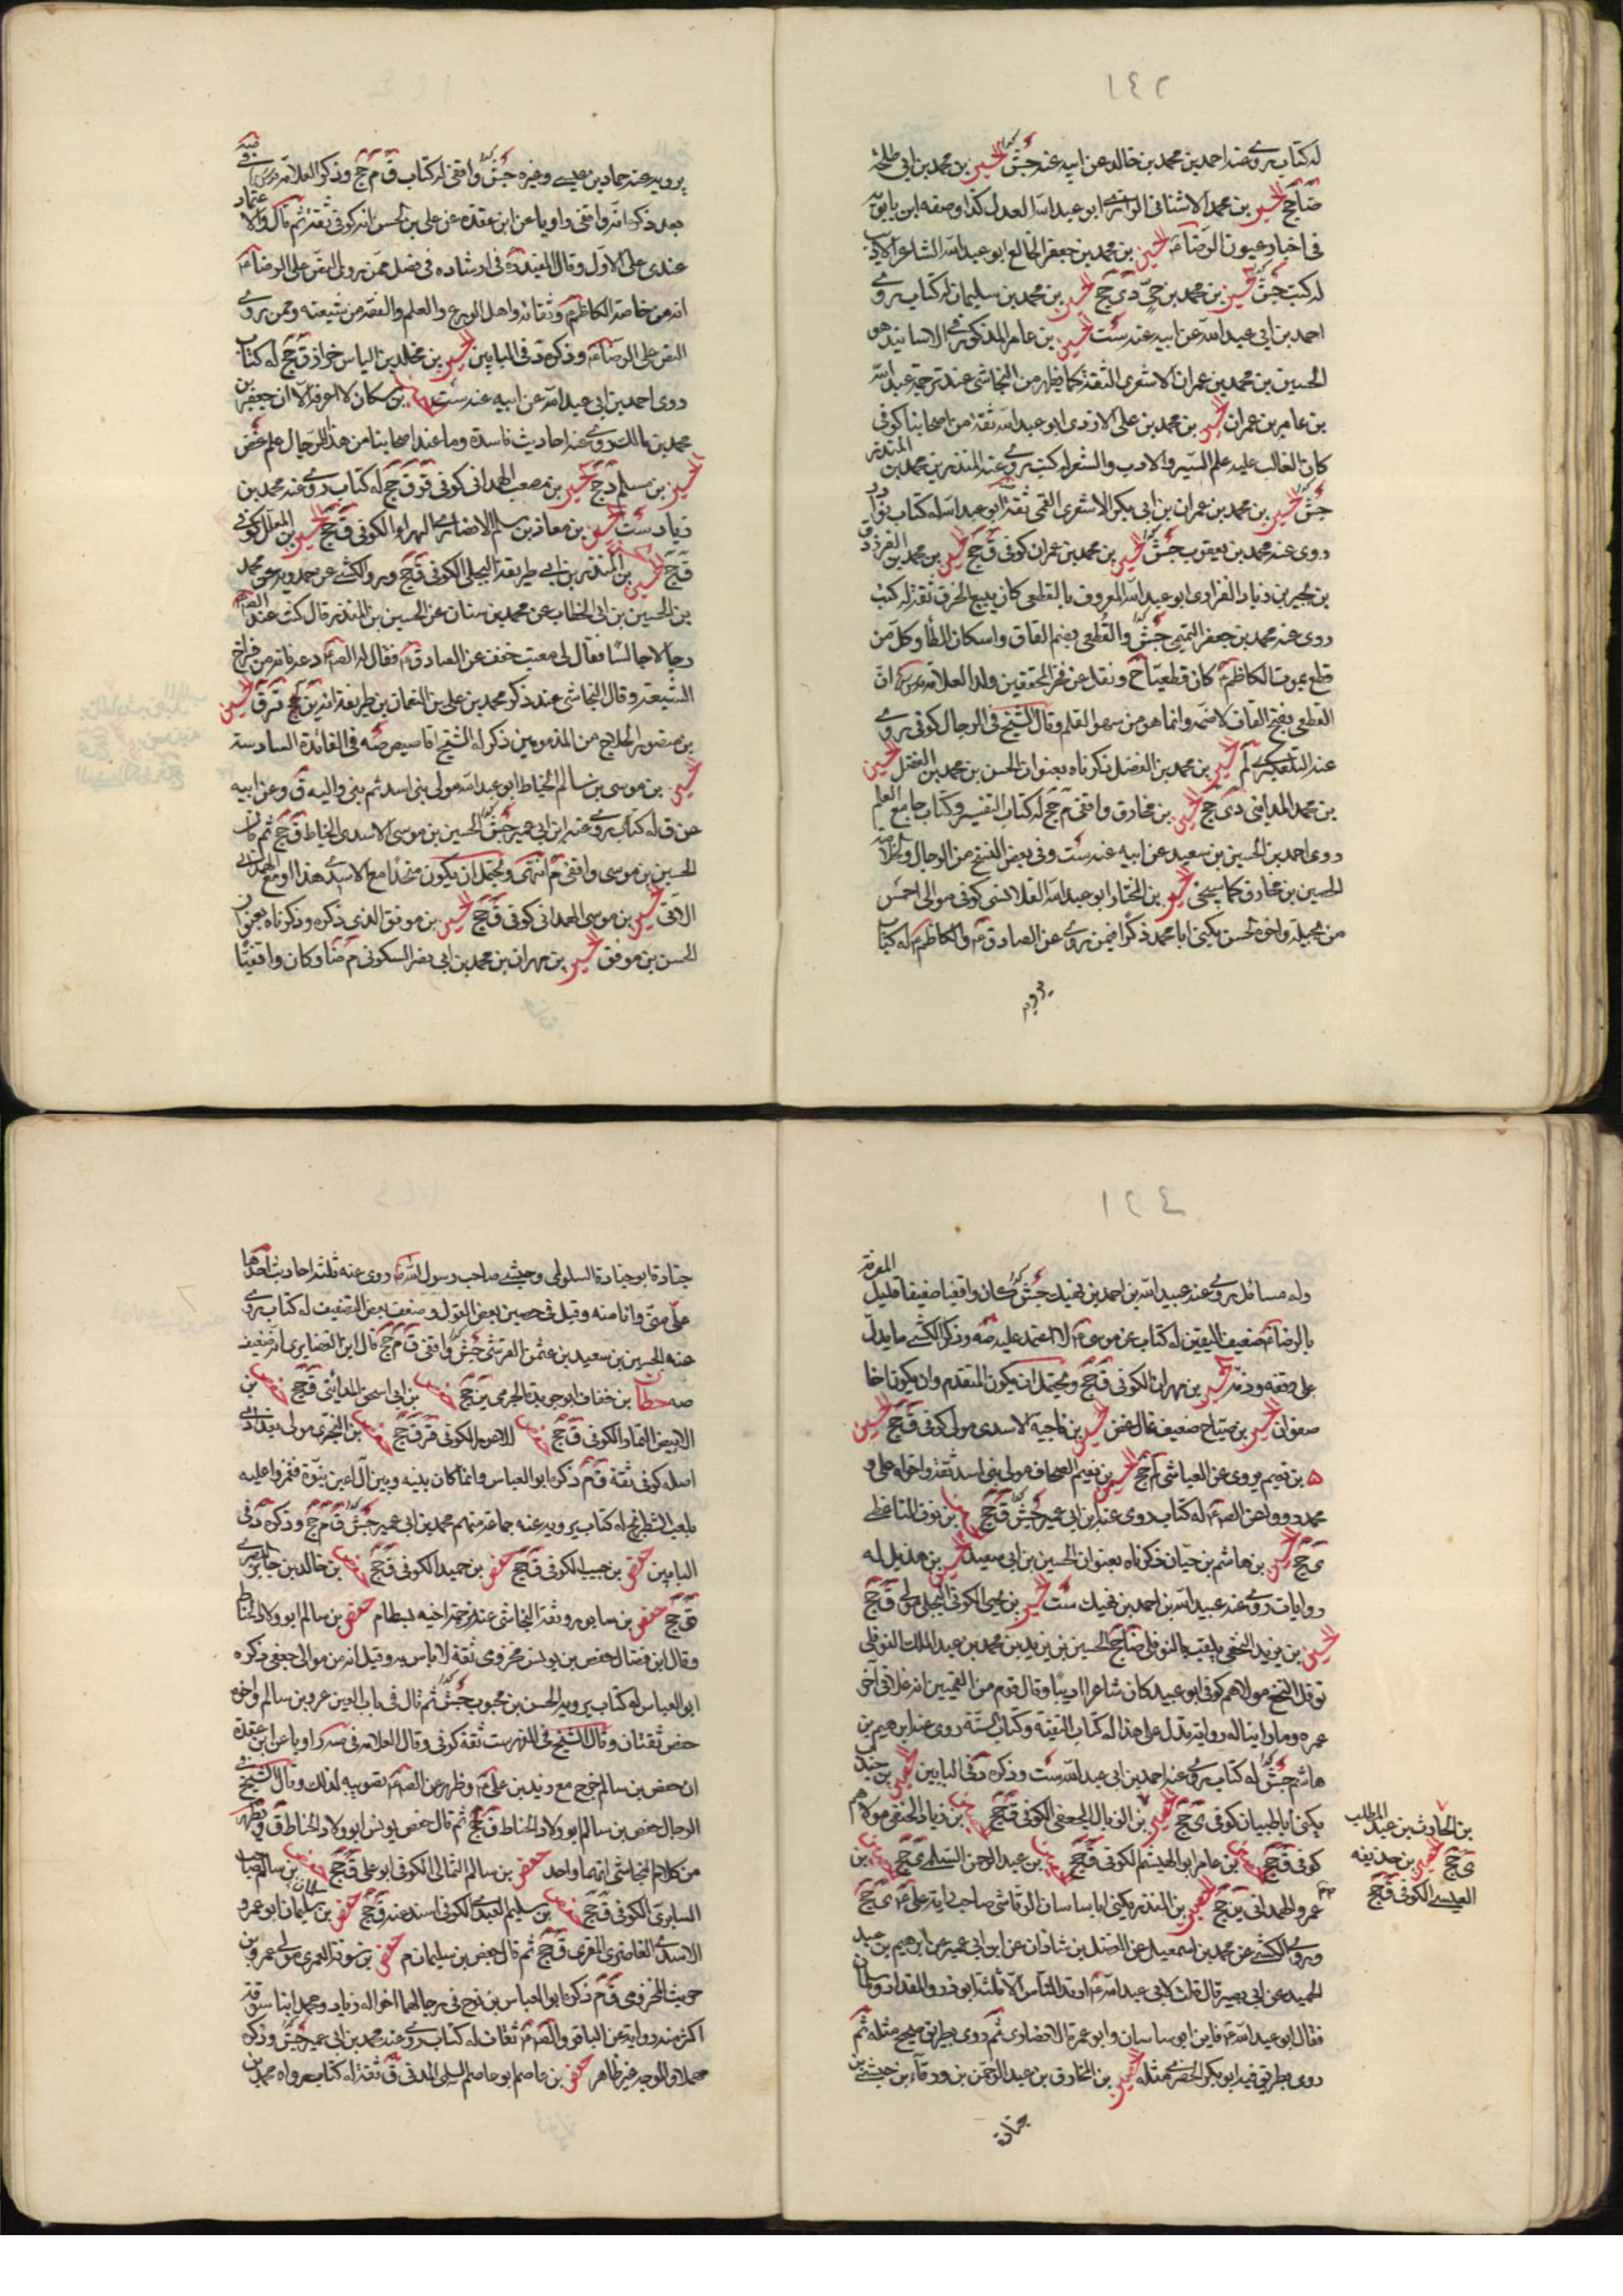 ١٤٢
له كتاب روى عنه احمد بن محمد بن خالد عن ابيه عنه جش الحسين بن محمد بن ابى طلحة
ضا جخ الحسين بن محمد الاشنانى الرازى ابو عبد الله العدل كذا وصفه ابن بابويه
فى اخبار عيون الرضا الحسين بن محمد بن جعفر الخالع ابو عبد الله الشاعر الاديب
له كتب جش الحسين بن محمد بن حى دى جخ الحسين بن محمد بن سليمان له كتاب روى
احمد بن ابى عبد الله عن ابيه عنه ست الحسين بن عامر المذكور فى الاسانيد هو
الحسين بن محمد بن عمران الاشعرى الثقة كما يظهر من النجاشى عند ترجمة عبد الله
بن عامر بن عمران الحسين بن محمد بن على الازدى ابو عبد الله ثقة من اصحابنا كوفى
كان الغالب عليه علم السير والادب والشعر له كتب روى عنه المنذر بن محمد بن المنذر
جش الحسين بن محمد بن عمران بن ابى بكر الاشعرى القمى ثقة ابو عبد الله له كتاب نوادر
روى عنه محمد بن يعقوب جش الحسين بن محمد بن عمران كوفى ق جخ الحسين بن محمد بن الفرزدق
بن بجير بن زياد الفزارى ابو عبد الله المعروف بالقطعى كان يبيع الخرق ثقة له كتب
روى عنه محمد بن جعفر التميمى جش والقطعى بضم القاف واسكان الطا وكل من
قطع بموت الكاظم كان قطعيا ح ونقل عن فخر المحققين ولد العلامة ان
القطعى بفتح القاف لا ضمه وانما هو من سهو القلم وقال الشيخ فى الرجال كوفى روى
عنه التلعكبرى لم الحسين بن محمد بن الفضل ذكرناه بعنوان الحسن بن محمد بن الفضل الحسين
بن محمد المداينى دى جخ الحسين بن مخارق واقفى م جخ له كتاب التفسير وكتاب جامع العلم
روى احمد بن الحسين بن سعيد عن ابيه عنه ست وفى بعض النسخ من الرجال
الحصين بن مخارق كما سيجئ الحسين بن المختار ابو عبد الله القلانسى كوفى مولى احمس
من بجيلة واخوه الحسن يكنى ابا محمد ذكرا فيمن روى عن الصادق والكاظم له كتاب
يرويه
يرويه عنه حماد بن عيسى وغيره جش واقفى له كتاب ق م جخ وذكر العلامة
بعد ذكر انه واقفى راويا عن ابن عقدة عن على بن الحسن انه كوفى ثقة ثم قال والاعتماد
عندى على الاول وقال المفيد فى ارشاده فى فصل ممن روى النص على الرضا
انه من خاصة الكاظم وثقاته واهل الورع والعلم والفقه من شيعته وممن روى
النص على الرضا وذكره د فى البابين الحسين بن مخلد بن الياس خواز ق جخ له كتاب
روى احمد بن ابى عبد الله عن ابيه عنه ست بن مسكان لا اعرفه الا ان جعفر بن
محمد بن مالك روى عنه احاديث فاسدة وما عند اصحابنا من هذا الرجال علم غض
الحسين بن مسلم د جخ الحسين بن مصعب الهمدانى كوفى قر ق جخ له كتاب روى عنه محمد بن
زياد ست الحسين بن معاذ بن مسلم الانصارى الهراء الكوفى ق جخ الحسين بن المعلل كوفى
ق جخ الحسين بن المنذر بن ابى طريفة البجلى الكوفى ق جخ وروى الكشى عن حمدويه عن محمد
بن الحسين بن ابى الخطاب عن محمد بن سنان عن الحسين بن المنذر قال كنت عند
رجالا جالسا فقال لى معتب خفف عن الصادق فقال له دعه فانه من فراخ
الشيعة وقال النجاشى عند ذكر محمد بن على بن النعمان بن طريفة الحسين
بن منصور الحلاج من المذمومين ذكر له الشيخ اقاصيص ضه فى الفائدة السادسة
الحسين بن موسى بن سالم الخياط ابو عبد الله مولى بنى اسد ثم بنى والبه ق وعن ابيه
عن ق له كتاب روى عنه ابن ابى عمير جش الحسين بن موسى الاسدى الحناط ق جخ ثم قال
الحسين بن موسى واقفى م انتهى ويحتمل ان يكون متحدا مع الاسدى هذا او مع الهمدانى
الاتى الحسين بن موسى الهمدانى كوفى ق جخ الحسين بن موفق الذى ذكره وذكرناه بعنوان
الحسن بن موفق الحسين بن مهران بن محمد بن ابى نصر السكونى م ضا وكان واقفيا
١٤٤
وله مسائل روى عنه عبيد الله بن احمد بن نهيك جش كان واقفيا ضعيفا قليل المعرفة
بالرضا ضعيف اليقين له كتاب عن موسى لا اعتمد عليه ضه وذكر الكشى ما يدل
على وقفه وذمه الحسين بن مهران الكوفى ق جخ ويحتمل ان يكون المتقدم وان يكون اخا
صفوان الحسين بن مياح ضعيف غال غض الحسين بن ناجية الاسدى مولى كوفى ق جخ الحسين
بن نعيم يروى عن العياشى لم جخ الحسين بن نعيم الصحاف مولى بنى اسد ثقة واخواه على و
محمد رووا عن له كتاب روى عنه ابن ابى عمير جش ق جخ بن نوف الناعظى
ى جخ الحسين بن هاشم بن حيان ذكرناه بعنوان الحسين بن ابى سعيد الحسين بن هذيل له
روايات روى عنه عبيد الله بن احمد بن نهيك ست الحسين بن يحيى الكوفى البجلى مولى ق جخ
الحسين بن يزيد النخعى يلقب بالنوفلى ضا جخ الحسين بن يزيد بن محمد بن عبد الملك النوفلى
نوفل النخع مولاهم كوفى ابو عبد كان شاعرا اديبا وقال قوم من القميين انه غلا فى اخر
عمره وما راينا له رواية تدل على هذا له كتاب التقية وكتاب السنة روى عنه ابرهيم بن
هاشم جش له كتاب روى عنه احمد بن ابى عبد الله ست وذكره د فى البابين الحصين بن جندب
يكنى ابا ظبيان كوفى ى جخ الحصين بن الزبال الجعفى الكوفى ق جخ بن زياد الحنفى مولاهم
كوفى ق جخ بن عامر ابو الهيثم الكوفى ق جخ بن عبد الرحمن السلمى ى جخ بن
عمرو الهمدانى ين جخ الحصين بن المنذر يكنى ابا ساسان الرقاشى صاحب راية على ى جخ
وروى الكشى عن محمد بن اسمعيل عن الفضل بن شاذان عن ابن ابى عمير عن ابرهيم بن عبد
الحميد عن ابى بصير قال قلت لابى عبد الله ارتد الناس الا ثلثة ابو ذر والمقداد وسلمان
فقال ابو عبد الله فاين ابو ساسان وابو عمرة الانصارى ثم روى بطريق صحيح مثله ثم
روى بطريق فيه ابو بكر الحضرمى مثله الحصين بن المخارق بن عبد الرحمن بن ورقاء بن حبشى بن
جنادة
بن الحارث بن عبد المطلب
ى جخ الحصين بن حذيفة
العبسى الكوفى ق جخ
جنادة ابو جنادة السلولى وحبشى صاحب رسول الله روى عنه ثلثة احاديث احدها
على منى وانا منه وقيل فى حصين بعض القول وضعف بعض التضعيف له كتاب روى
عنه الحسين بن سعيد بن عثمن القرشى جش واقفى ق م جخ قال ابن الغضايرى انه ضعيف
صه حطان بن خفاف ابو جويرية الجرمى ين جخ حفص بن ابى اسحق المدائنى ق جخ حفص بن
الابيض التمار الكوفى ق جخ حفص الاعور الكوفى قر ق جخ حفص بن البخترى مولى بغدادى
اصله كوفى ثقة ق م ذكره ابو العباس وانما كان بينه وبين آل اعين نبوة فغمزوا عليه
بلعب الشطرنج له كتاب يرويه عنه جماعة منهم محمد بن ابى عمير جش ق م جخ وذكره د فى
البابين حفص بن حبيب الكوفى ق جخ حفص بن حميد الكوفى ق جخ حفص بن خالد بن جابر البصرى
ق جخ حفص بن سابور وثقه النجاشى عند ترجمة اخيه بسطام حفص بن سالم ابو ولاد الحناط
وقال ابن فضال حفص بن يونس مخزومى ثقة لا باس به وقيل انه من موالى جعفى ذكره
ابو العباس له كتاب يرويه الحسن بن محبوب جش ثم قال فى باب العين عمرو بن سالم واخوه
حفص ثقتان وقال الشيخ فى الفهرست ثقة كوفى وقال العلامة فى صه راويا عن ابن عقدة
ان حفص بن سالم خرج مع زيد بن على وظهر عن تصويبه لذلك وقال الشيخ فى
الرجال حفص بن سالم ابو ولاد الحناط ق جخ ثم قال حفص بن يونس ابو ولاد الحناط ق ويظهر
من كلام النجاشى انهما واحد حفص بن سالم الثمالى الكوفى ابو على ق جخ حفص بن سالم صاحب
السابرى الكوفى ق جخ حفص بن سليم العبدى الكوفى اسند عنه ق جخ حفص بن سليمان ابو عمرو
الاسدى الغاضرى المقرى ق جخ ثم قال حفص بن سليمان م حفص بن سوقة العمرى مولى عمرو بن
حريث المخزومى ق م ذكره ابو العباس بن نوح فى رجالهما اخواه زياد ومحمد ابنا سوقة
اكثر منه رواية عن الباقر ثقات له كتاب روى عنه محمد بن ابى عمير جش وذكره
مهملا والوجه غير ظاهر حفص بن عاصم ابو عاصم السلمى المدنى ق ثقة له كتاب رواه محمد بن